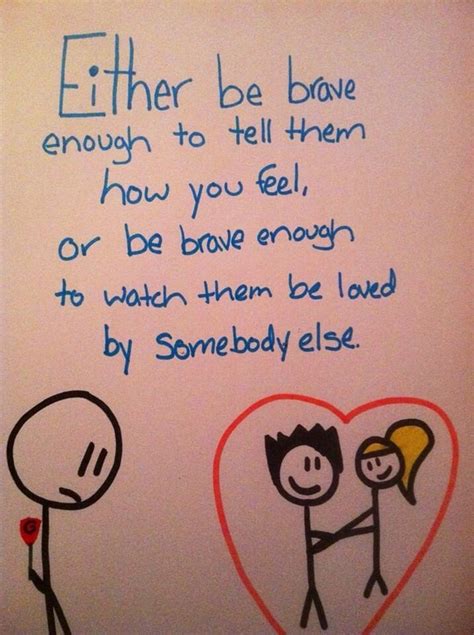 Either be brave
enough to tell them
how you feel,
or be brave enough
to watch them be loved
by somebody else.